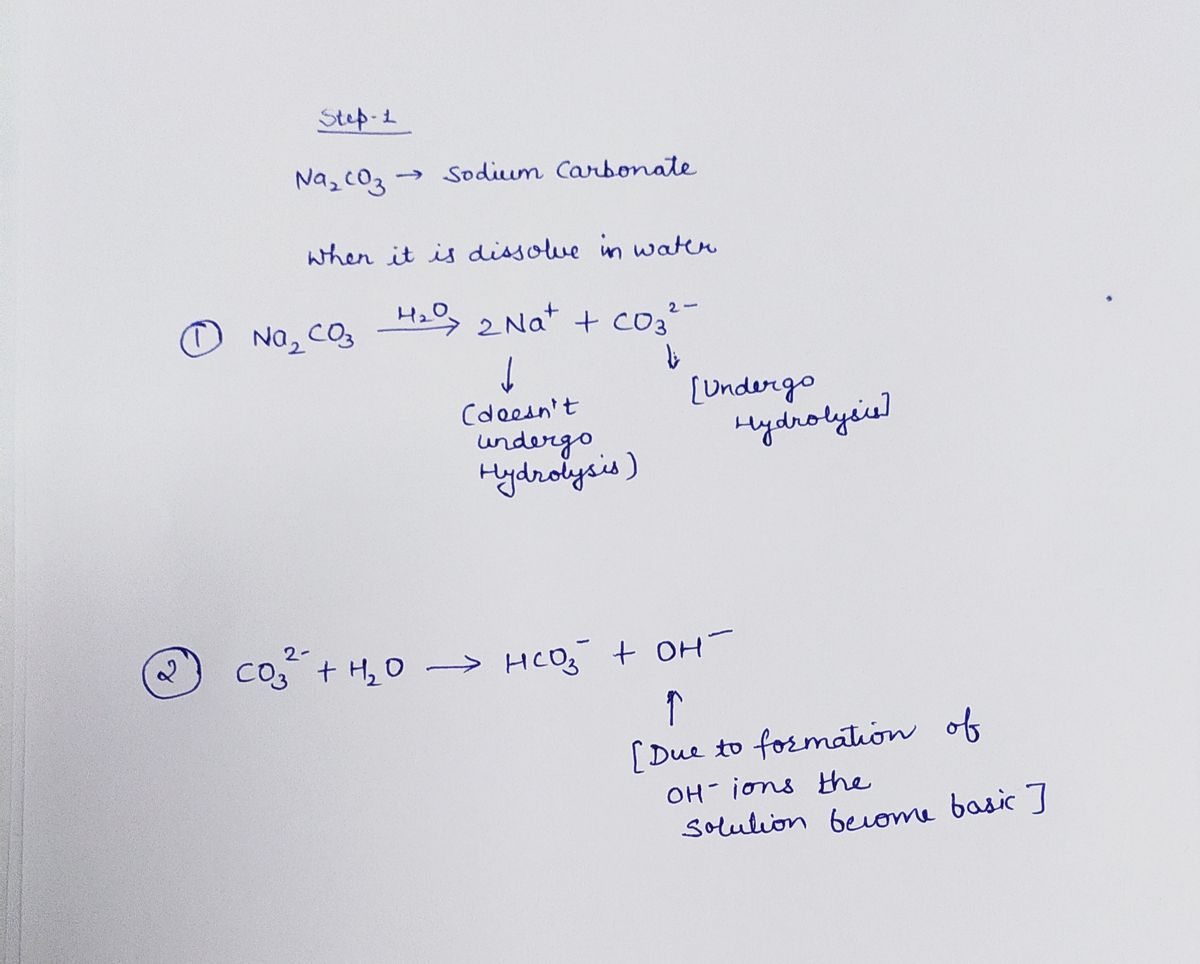 Step-1
Na₂CO₃ → Sodium Carbonate
When it is dissolve in water
① Na₂CO₃ —H₂O→ 2Na⁺ + CO₃²⁻
↓ ↓
(doesn't
undergo
Hydrolysis)
[Undergo
Hydrolysis]
② CO₃²⁻ + H₂O → HCO₃⁻ + OH⁻
↑
[Due to formation of
OH⁻ ions the
Solution become basic]